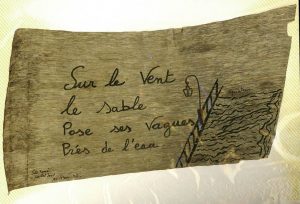 Sur le Vent
le sable
Pose ses Vagues
Près de l'eau